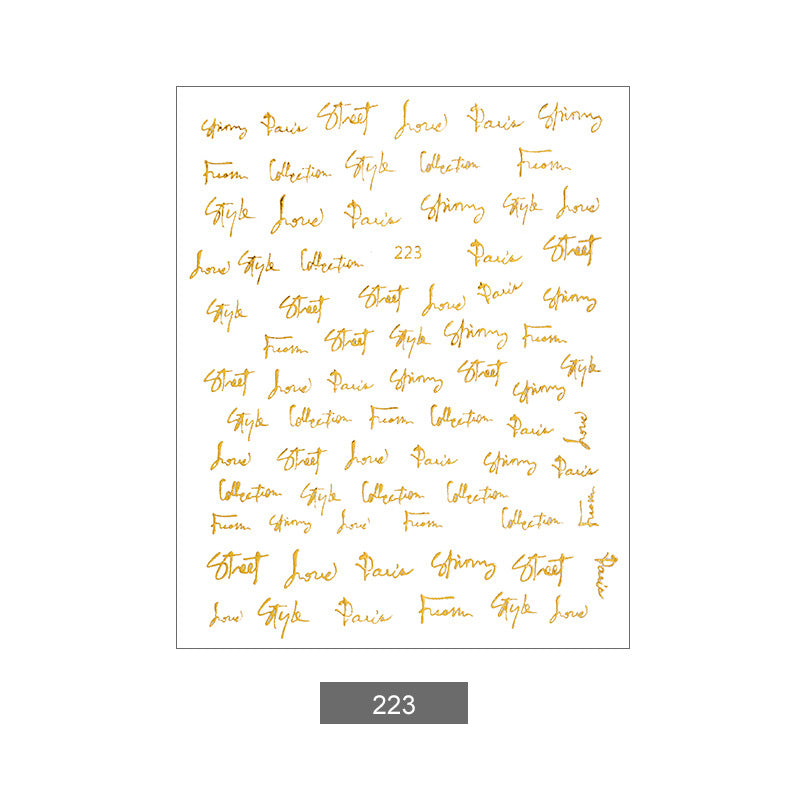 Spinny Paris Street Love Paris Spinny
From Collection Style Collection From
Style Love Paris Spinny Style Love
Love Style Collection 223 Paris Street
Style Street Street Love Paris Spinny
From Street Style Spinny From
Street Love Paris Spinny Street Spinny Style
Style Collection From Collection Paris Love
Love Street Love Paris Spinny Paris
Collection Style Collection Collection From
From Spinny Love From Collection
Street Love Paris Spinny Street Paris
Love Style Paris From Style Love
223